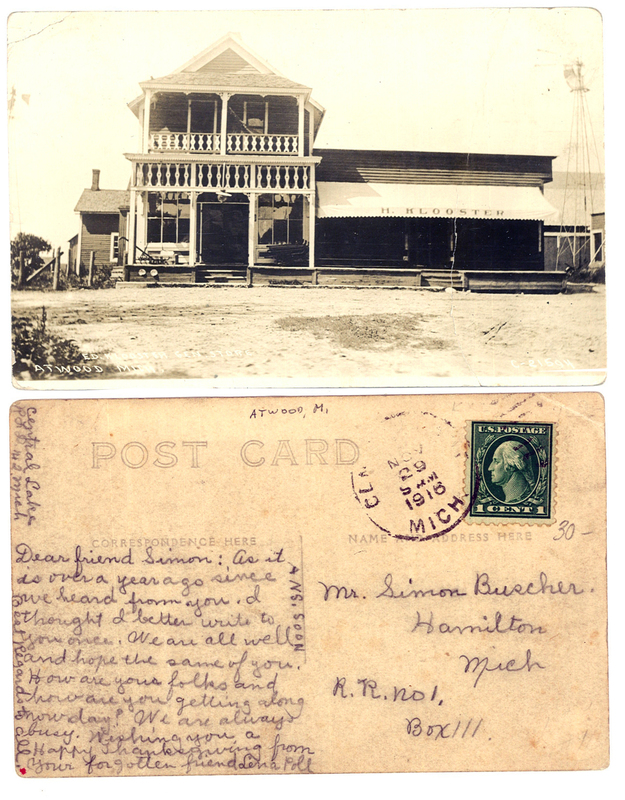 H. KLOOSTER
ATWOOD
ATWOOD, M,
POST CARD
NOV
29
5 AM
1916
MICH
U.S. POSTAGE
1 CENT 1
30-
CORRESPONDENCE HERE
NAME AND ADDRESS HERE
Central Lake
Mich
Dear friend Simon: As it
is over a year ago since
we heard from you. I
thought I better write to
you once. We are all well
and hope the same of you.
How are your folks and
how are you getting along
now day? We are always
busy. Wishing you a
Happy Thanksgiving from
Your forgotten friend Lena Poll
ANS. SOON
Best Regards to all
Mr. Simon Buscher.
Hamilton
Mich
R. R. no 1,
Box 111.